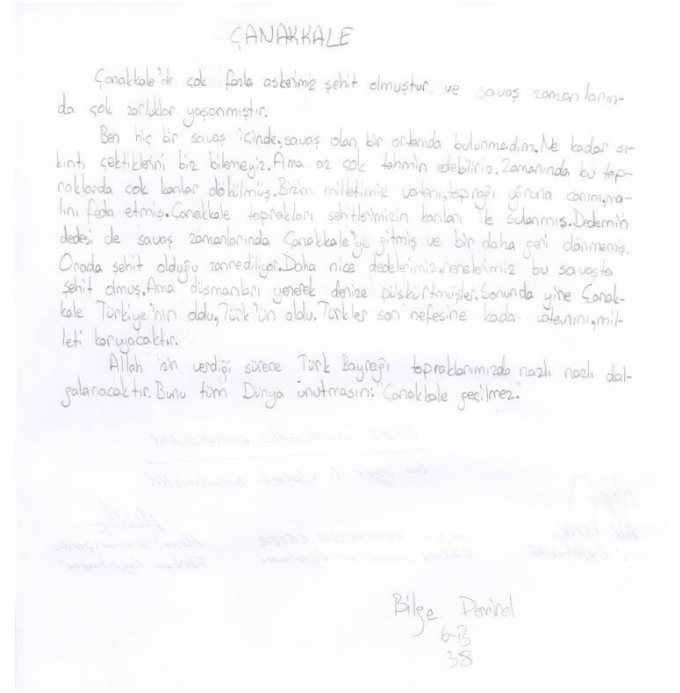 ÇANAKKALE
Çanakkale'de çok fazla askerimiz şehit olmuştur ve savaş zamanların-
da çok zorluklar yaşanmıştır.
Ben hiç bir savaş içinde, savaş olan bir ortamda bulunmadım. Ne kadar sı-
kıntı çektiklerini biz bilemeyiz. Ama az çok tahmin edebiliriz. Zamanında bu top-
raklarda çok kanlar dökülmüş. Bizim milletimiz vatanı, toprağı uğruna canını, ma-
lını feda etmiş. Çanakkale toprakları şehitlerimizin kanları ile sulanmış. Dedemin
dedesi de savaş zamanlarında Çanakkale'ye gitmiş ve bir daha geri dönmemiş.
Orada şehit olduğu zannediliyor. Daha nice dedelerimiz, nenelerimiz bu savaşta
şehit olmuş. Ama düşmanları yenerek denize püskürtmüşler. Sonunda yine Çanak-
kale Türkiye'nin oldu, Türk'ün oldu. Türkler son nefesine kadar vatanını, mil-
leti koruyacaktır.
Allah izin verdiği sürece Türk Bayrağı topraklarımızda nazlı nazlı dal-
galanacaktır. Bunu tüm Dünya unutmasın: "Çanakkale geçilmez."
Bilge Demirel
6-B
38